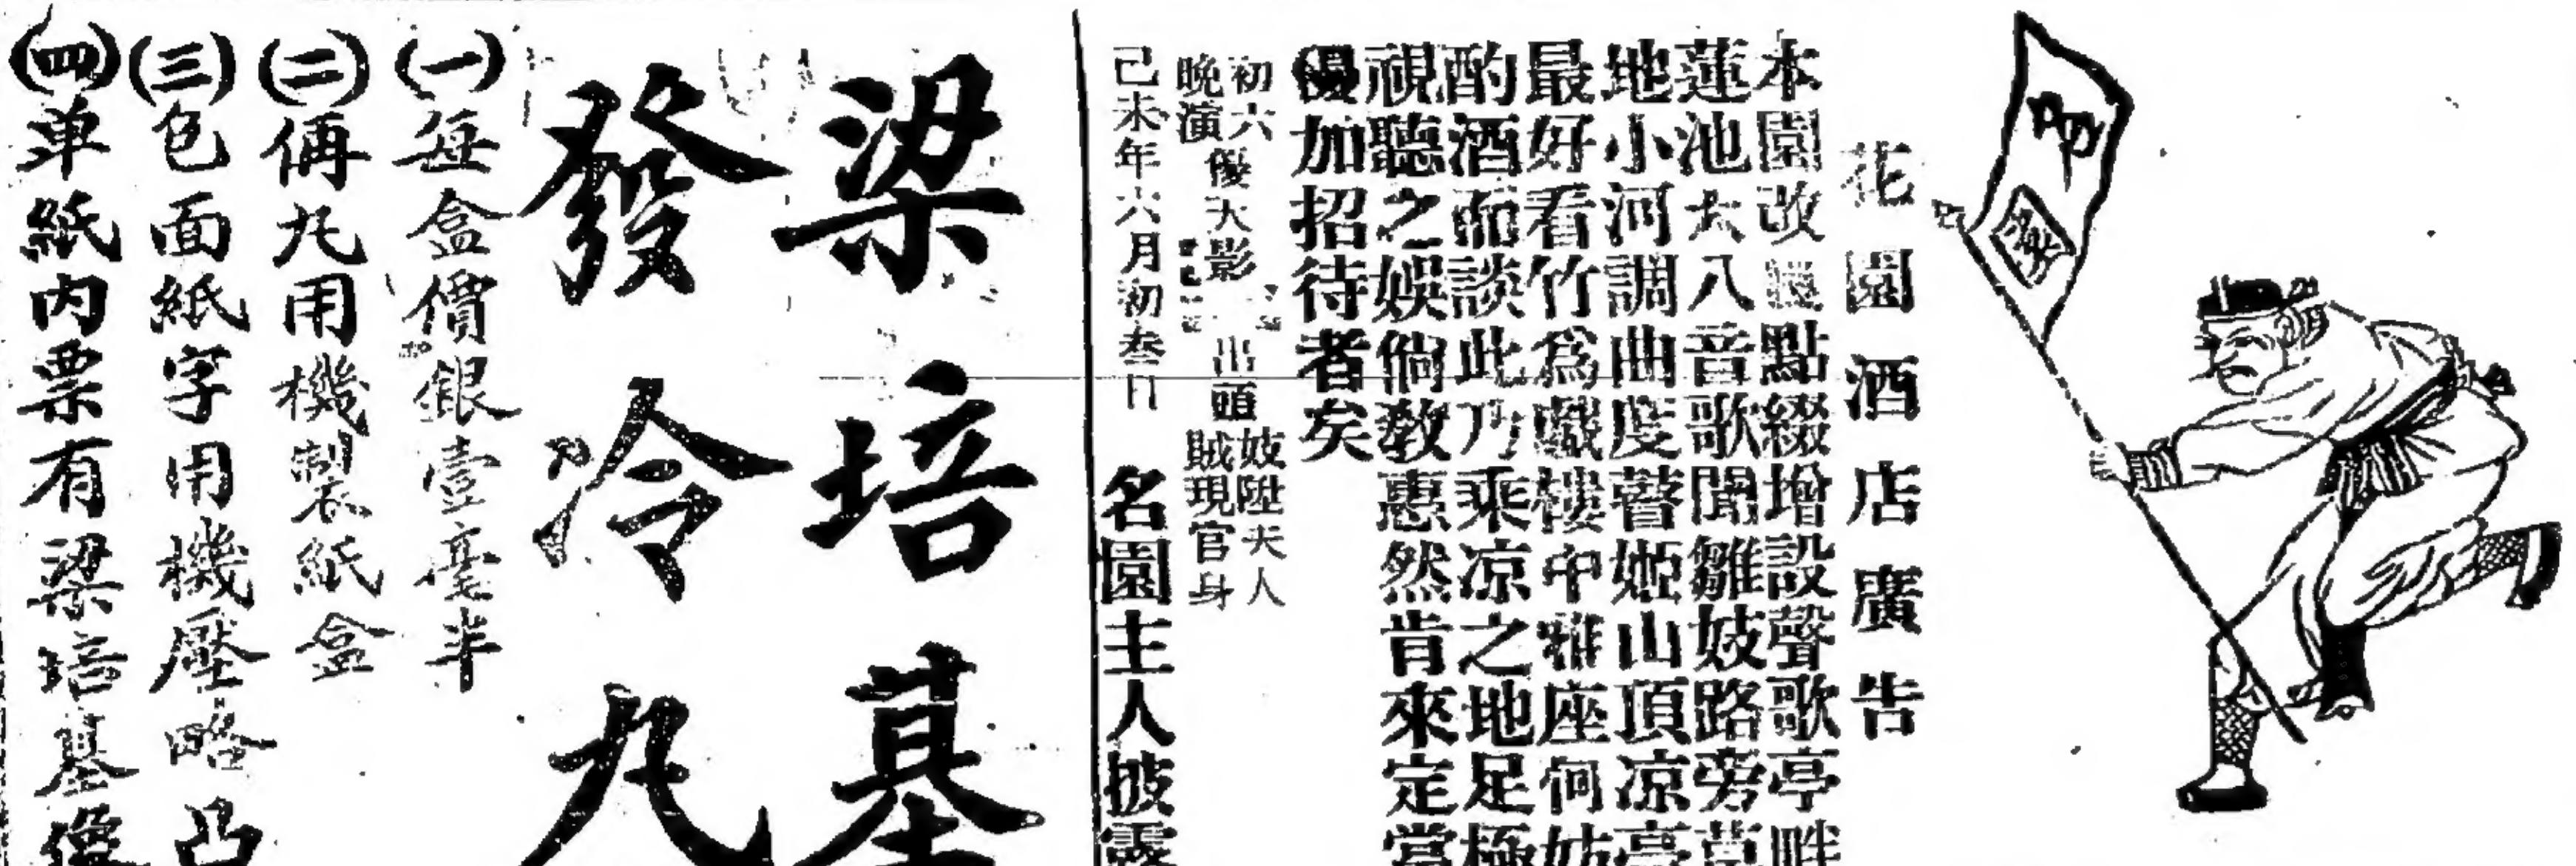 花園酒店廣告
本園改點綴增設聲歌亭畔
蓮池大八音歌聞雛妓路旁草
地小河調曲度瞽姬山頂凉臺
最好看竹爲戲樓中雅座何妨
酌酒而談此乃乘凉之地足極
視聽之娛倘敎惠然肯來定當
優加招待者矣
初六晚演
優天影
出頭
妓陞夫人
賊現官身
己未年六月初叁日 名園主人披露
梁培基
發冷丸
(一)每盒價銀壹毫半
(二)俩丸用機製紙盒
(三)色面紙字用機壓略凸
(四)单紙内票有梁培基像